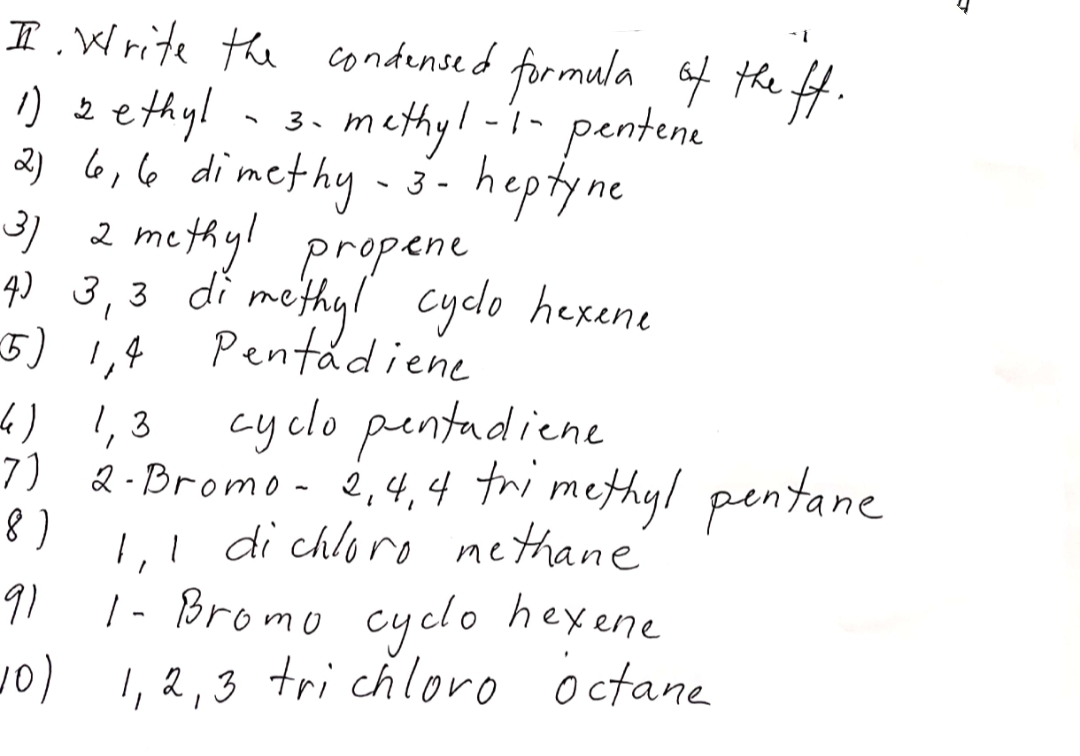 II. Write the condensed formula of the ff.
1) 2 ethyl - 3- methyl -1- pentene
2) 6,6 dimethy - 3 - heptyne
3) 2 methyl propene
4) 3,3 di methyl cyclo hexene
5) 1,4 Pentadiene
6) 1,3 cyclo pentadiene
7) 2-Bromo- 2,4,4 tri methyl pentane
8) 1,1 di chloro methane
9) 1- Bromo cyclo hexene
10) 1,2,3 tri chloro octane